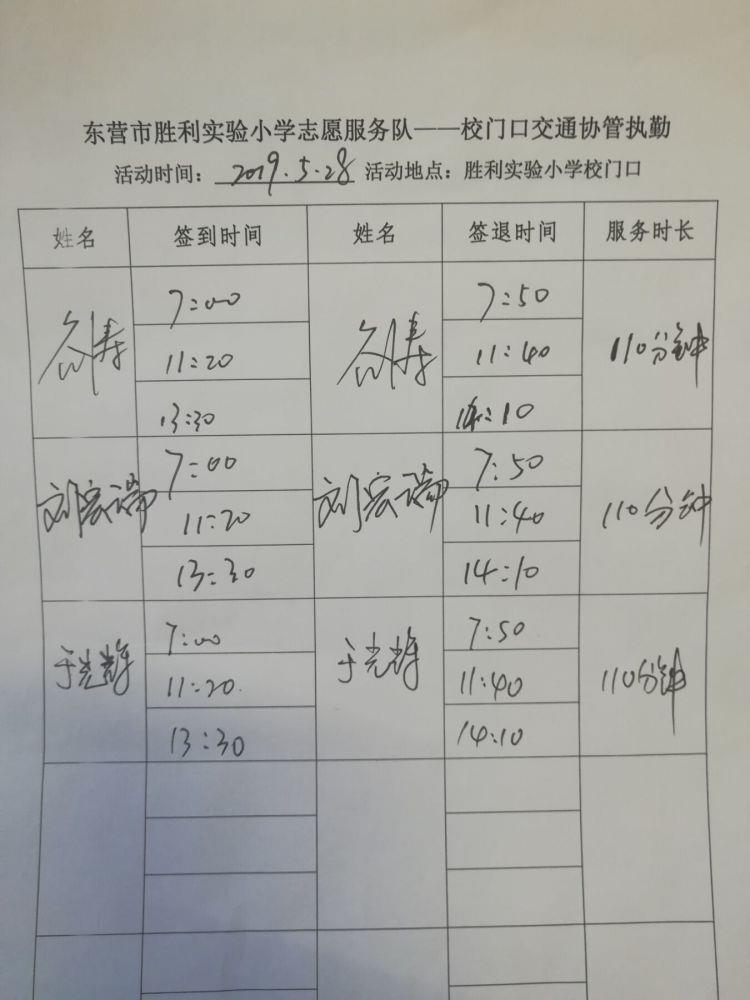 东营市胜利实验小学志愿服务队——校门口交通协管执勤
活动时间：2019.5.28 活动地点：胜利实验小学校门口
姓名 签到时间 姓名 签退时间 服务时长
7:00 7:50
11:20 11:40 110分钟
13:30 14:10
7:00 7:50
刘宏瑞 11:20 刘宏瑞 11:40 110分钟
13:30 14:10
7:00 7:50
于光辉 11:20 于光辉 11:40 110分钟
13:30 14:10